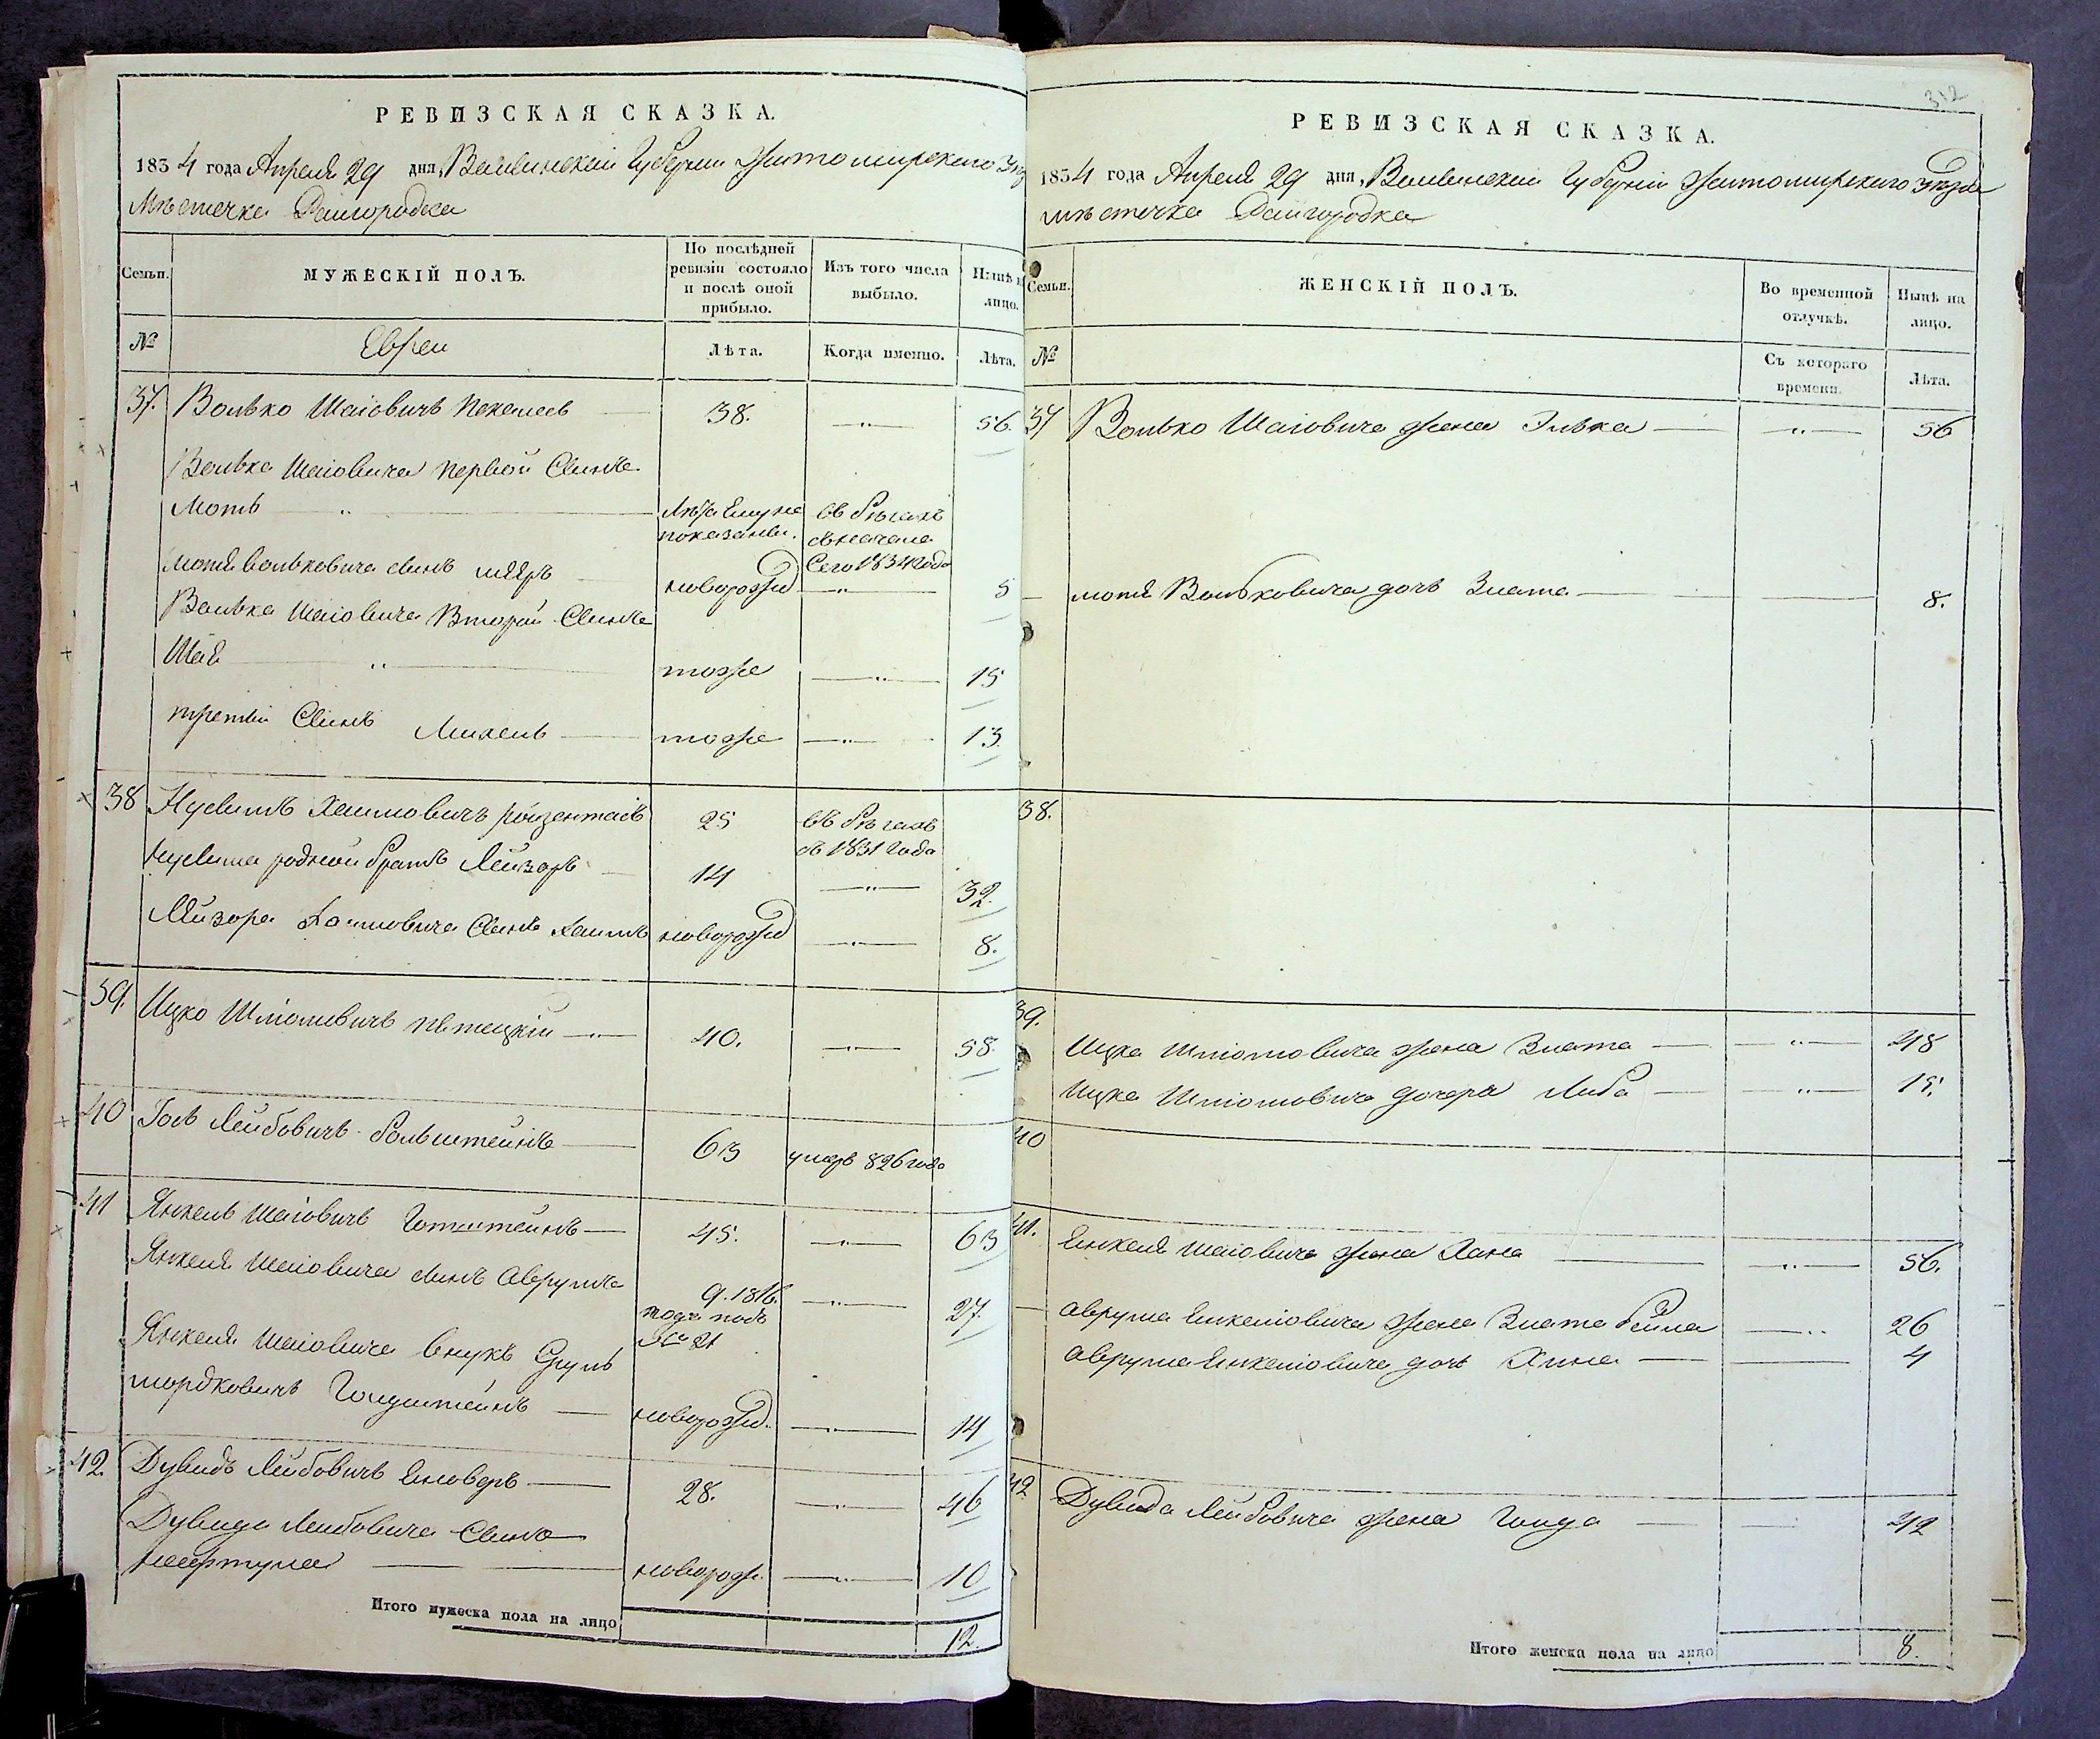 РЕВИЗСКАЯ СКАЗКА.
1834 года Апреля 29 дня, Волынской Губернии Житомирского
Мѣстечка Райгородка
Семьи.
МУЖЕСКІЙ ПОЛЪ.
По послѣдней ревизіи состояло и послѣ оной прибыло.
Изъ того числа выбыло.
Нынѣ н лицо.
№
Евреи
Лѣта.
Когда именно.
Лѣта.
37. Волько Шаіовичъ 38. 56.
Волька Шаіовича первой Сынъ
Моть Лѣта ему не въ бѣгахъ
показаны. съ начала
Сего 1834 года
Мотя Вольковича сынъ новорожд 5
Волька Шаіовича Второй Сынъ
Шая тоже 15
третій Сынъ Михель тоже 13.
38 Нусимъ Хаимовичъ 25 въ бѣгахъ
съ 1831 года
Нусима родной братъ Лейзоръ 14 32.
Лейзора Хаимовича Сынъ Хаимъ новорожд 8.
39. Ицко 40. 58.
40 Гось Лейбовичъ 63 умеръ 826 года
41 Янкель Шаіовичъ Гольштейнъ 45. 63
Янкеля Шаіовича сынъ Аврумъ 9. 1816. 27.
подъ
№ 21
Янкеля Шаіовича внукъ Сруль
Мордковичъ Гольдштейнъ новорожд. 14
42. Дувидъ Лейбовичъ 28. 46
Дувида Лейбовича Сынъ
Нафтула новорож. 10
Итого мужеска пола на лицо 12.
312
РЕВИЗСКАЯ СКАЗКА.
1834 года Апреля 29 дня, Волынской Губерніи Житомирского уѣзда
мѣстечка Райгородка
Семьи.
ЖЕНСКІЙ ПОЛЪ.
Во временной отлучкѣ.
Нынѣ на лицо.
№
Съ котораго времени.
Лѣта.
37 Волько Шаіовича жена 56
Мотя Вольковича дочь Злата 8.
38.
39.
Ицка Шліомовича жена Злата 48
Ицка Шліомовича дочера Либа 15.
40
41. Енкеля Шаіовича жена Хана 56.
Аврума Енкеліовича жена Злата Бейла 26
Аврума Енкеліовича дочь 4
42 Дувида Лейбовича жена Голда 42
Итого женска пола на лицо 8.